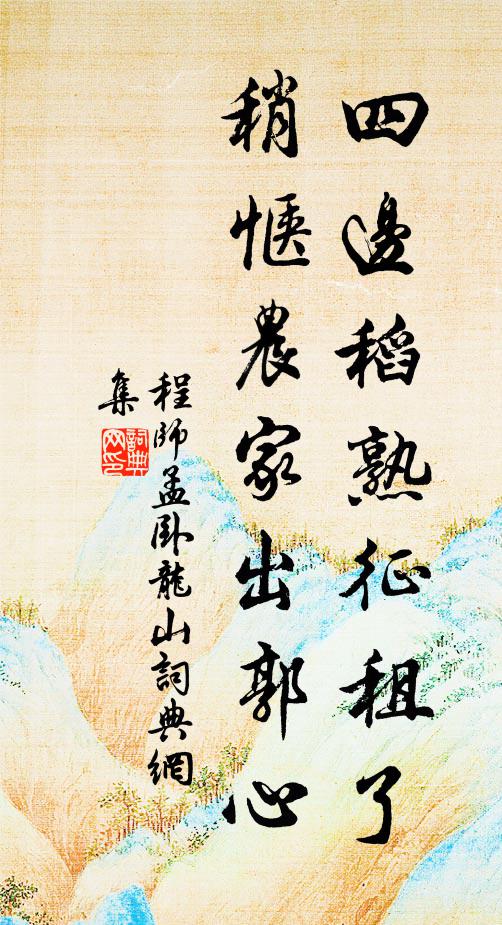 四邊稻熟征租了
稍愜農家出郭心
程師孟卧龍山詞典網
集
詞典
网印